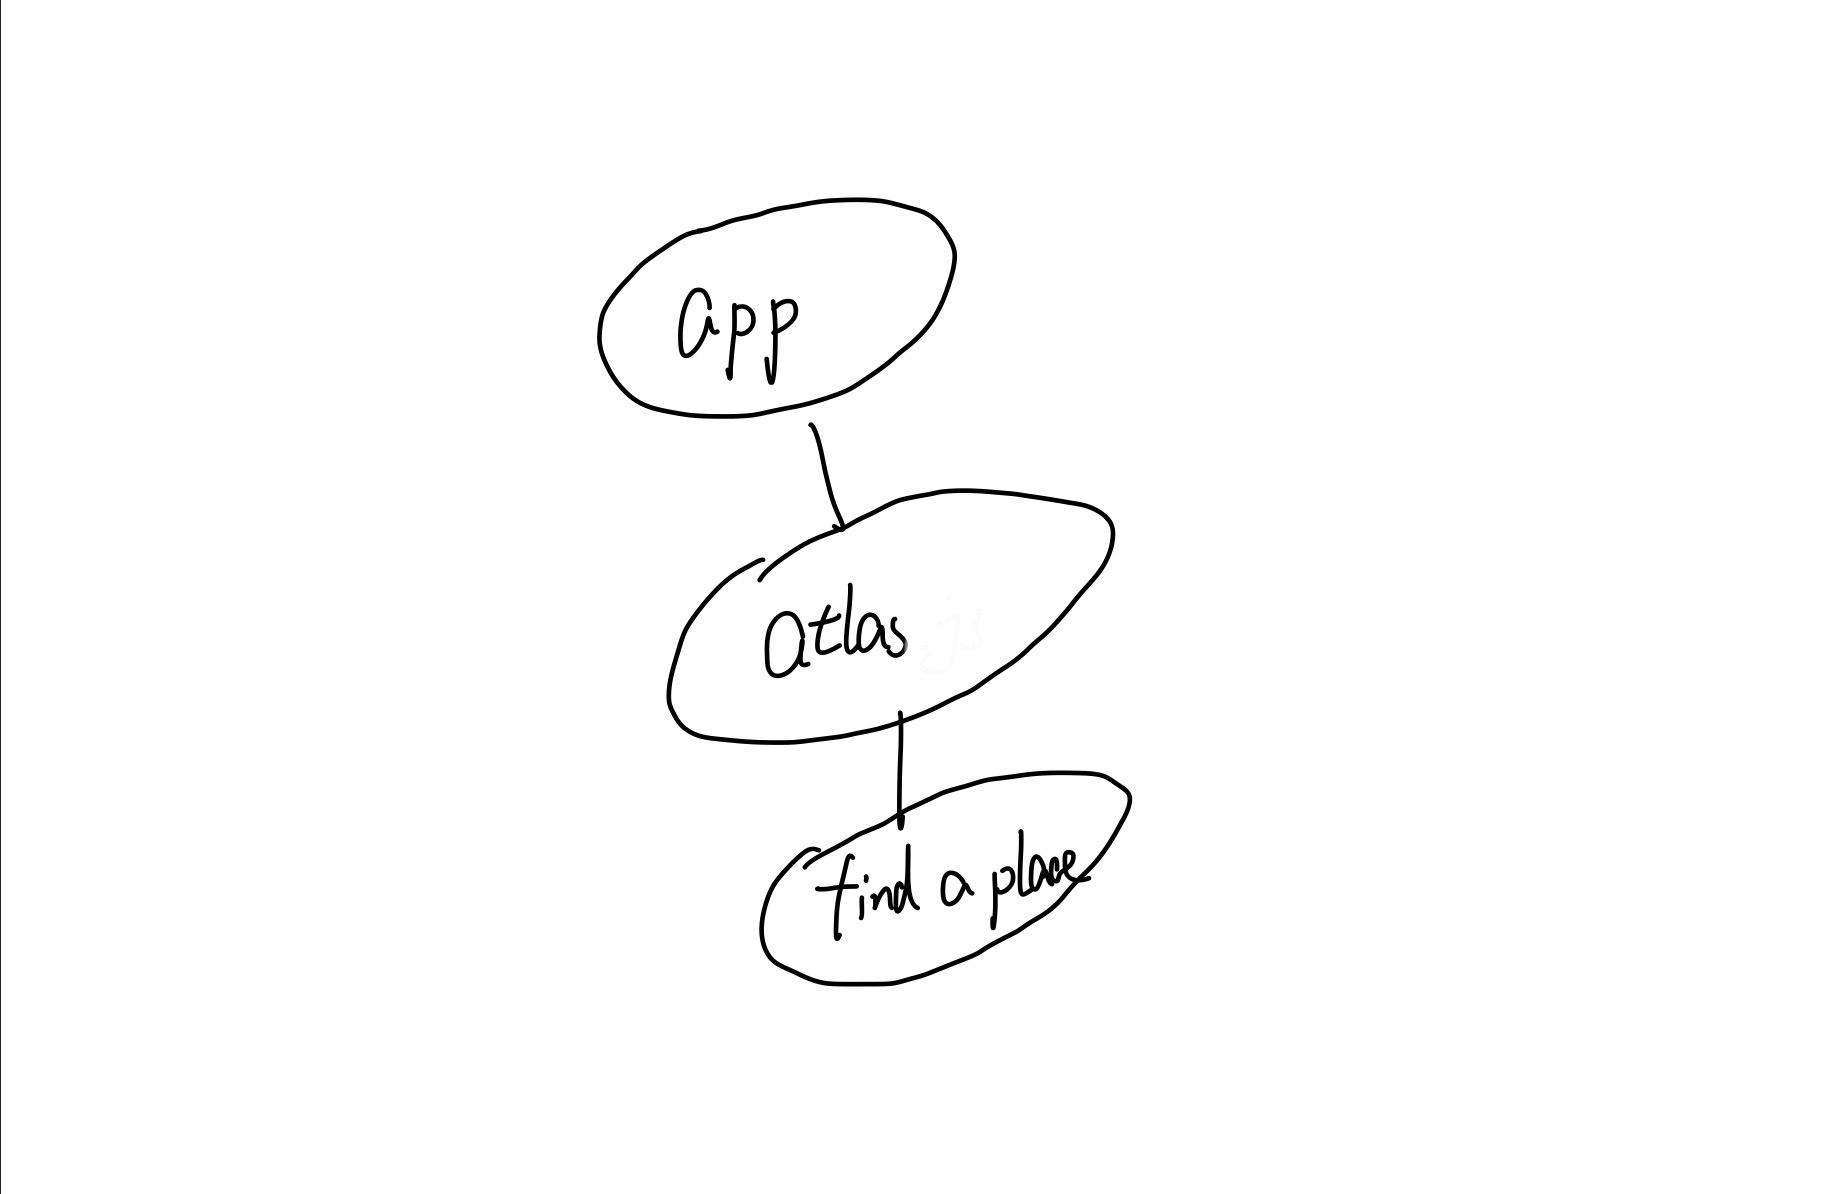 app
atlas
find a place